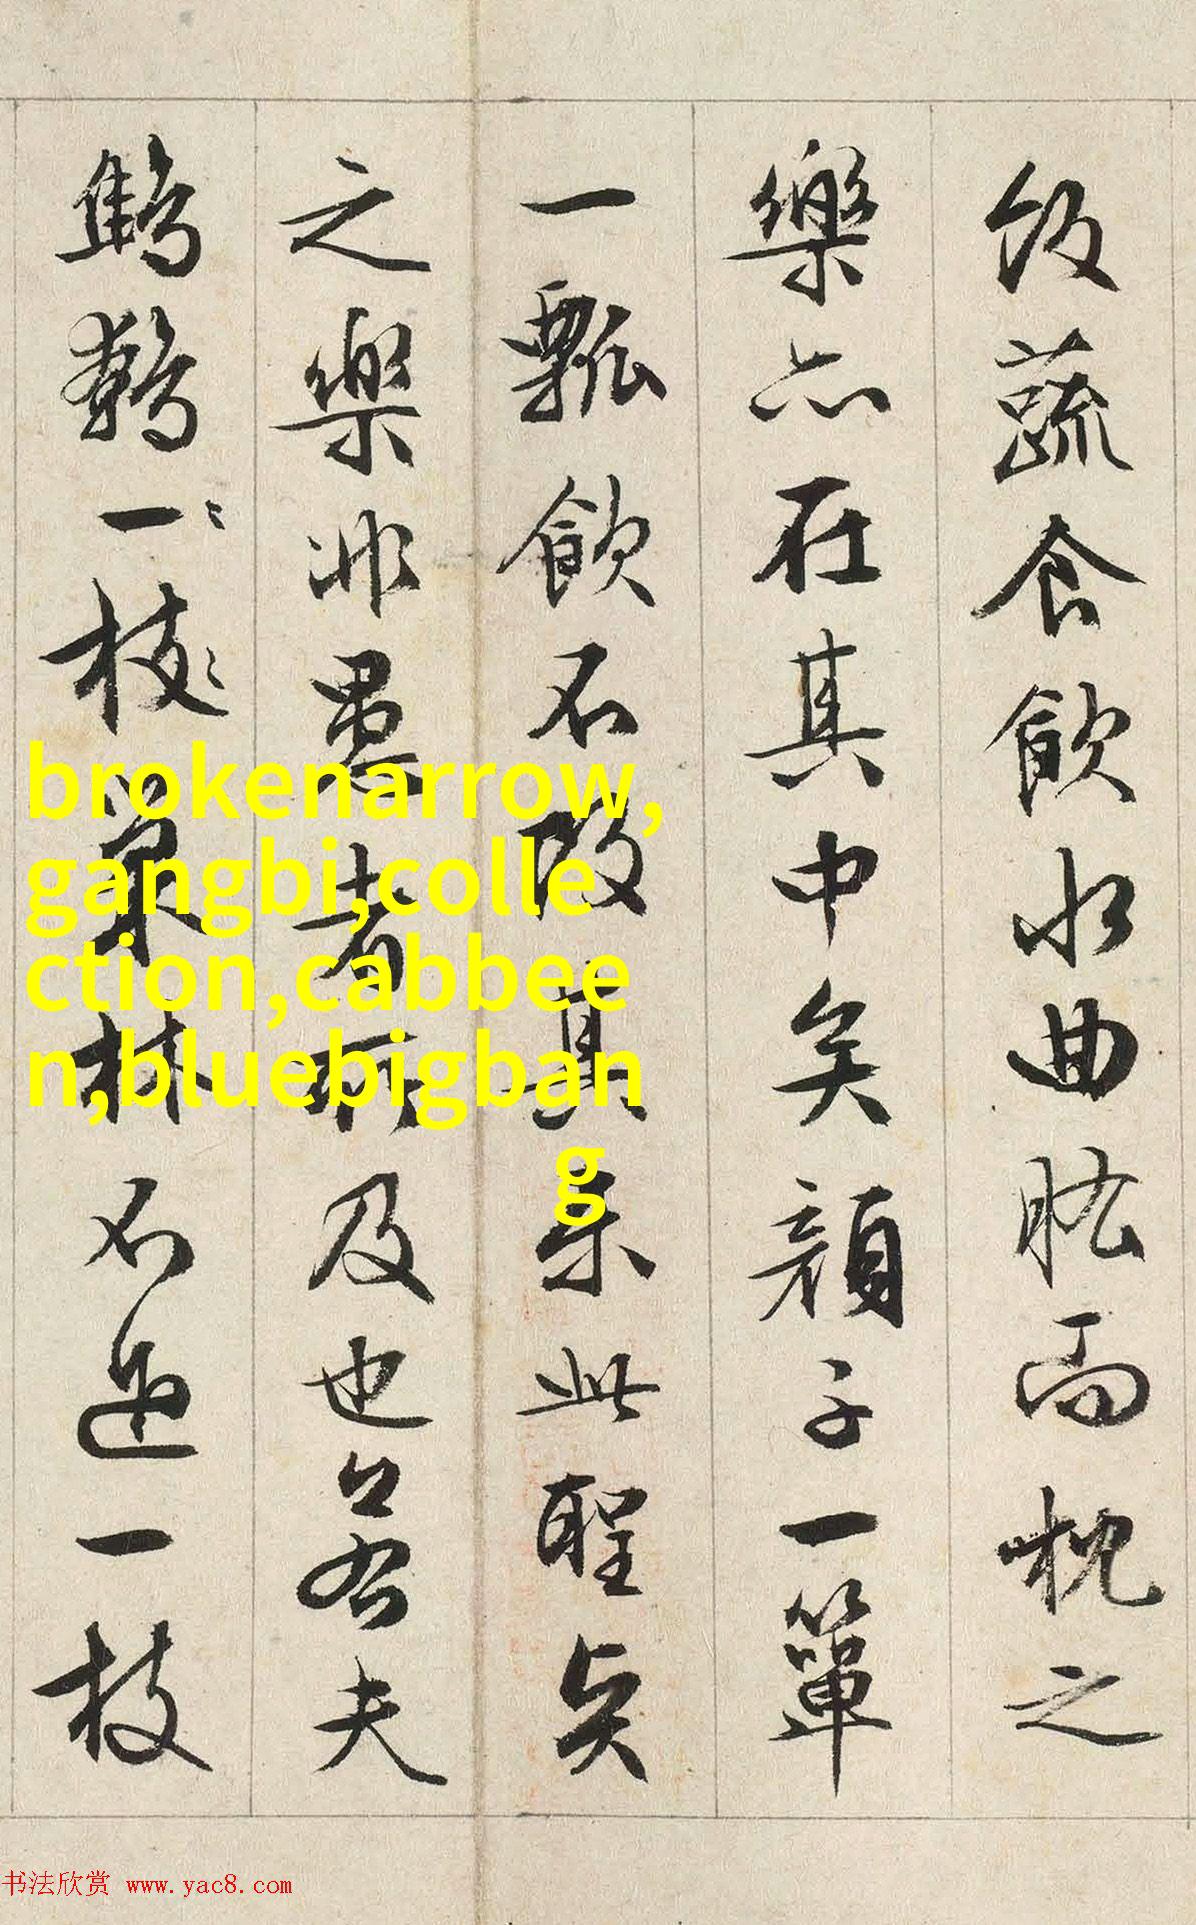 飯蔬食飲水曲肱而枕之
樂亦在其中矣顏子一簞
一瓢飲不改其樂此聖賢
之樂非愚者所及也若夫
鷦鷯一枝巢林不過一枝
brokenarrow,
gangbi,colle
ction,cabbee
n,bluebigban
g
书法欣赏 www.yac8.com